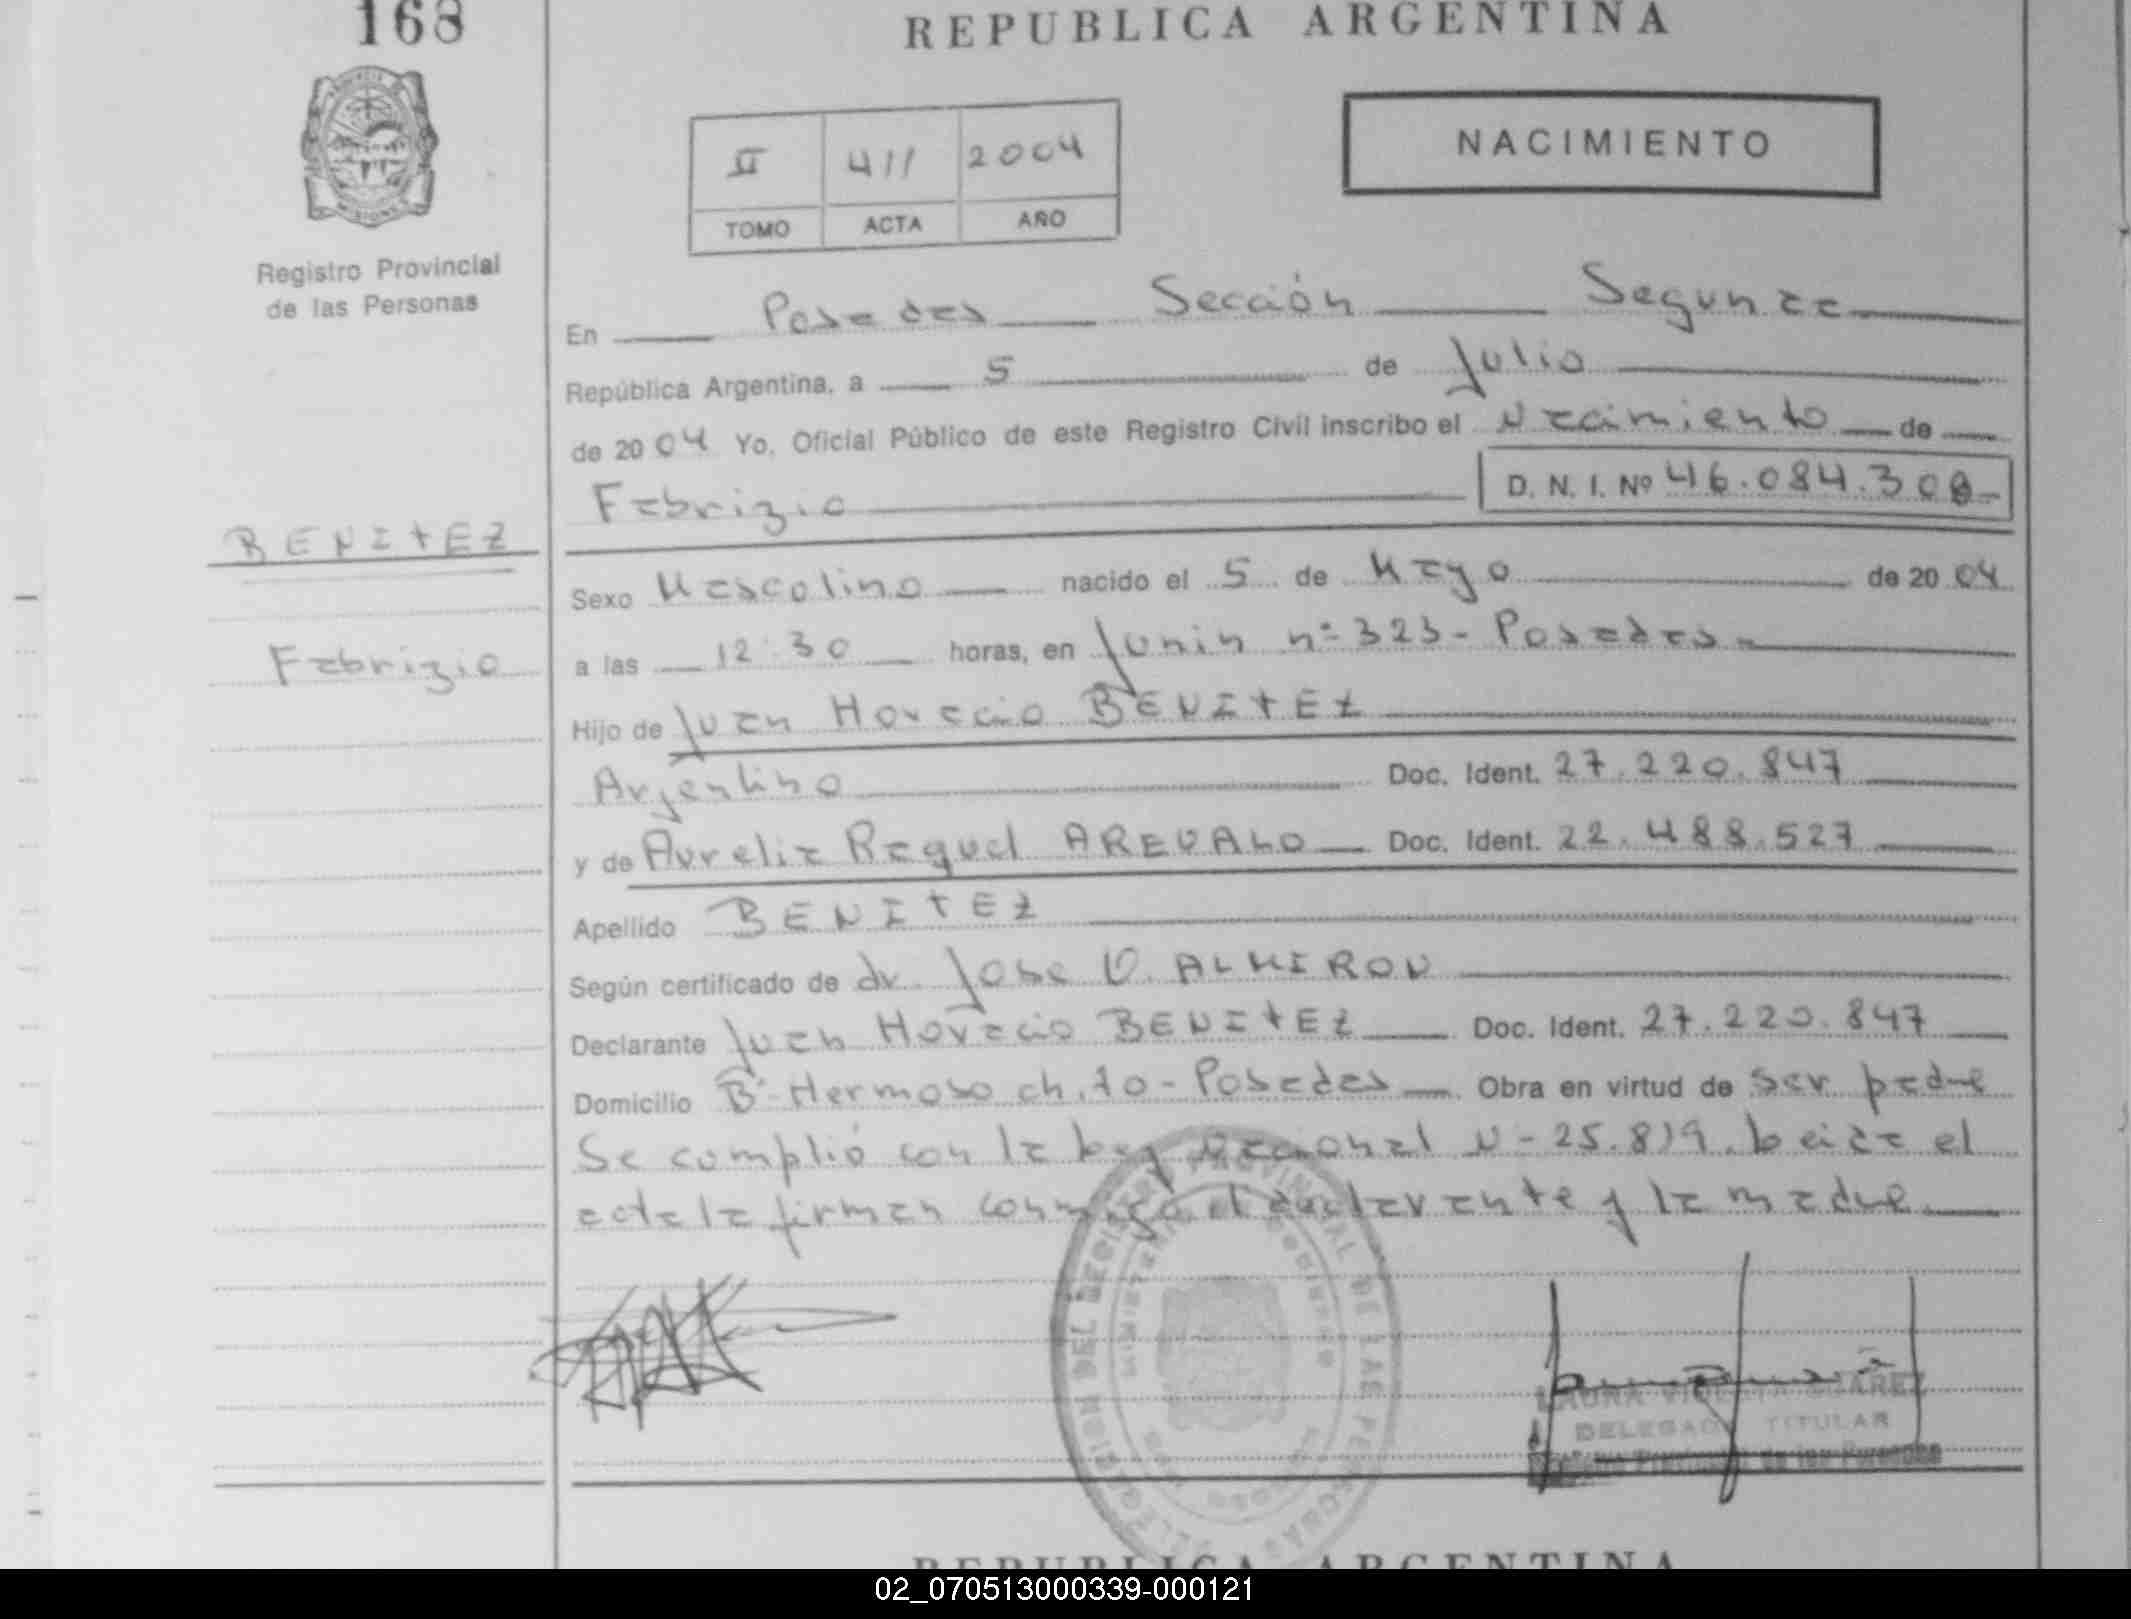 168
REPUBLICA ARGENTINA
MISIONES
Registro Provincial
de las Personas
II 411 2004
TOMO ACTA AÑO
NACIMIENTO
En Posadas Sección Segunda
República Argentina, a 5 de Julio
de 2004 Yo, Oficial Público de este Registro Civil inscribo el Nacimiento de
Fabrizio D. N. I. Nº 46.084.308
BENITEZ
Fabrizio
Sexo Masculino nacido el 5 de Mayo de 2004
a las 12:30 horas, en Junin nº 323 - Posadas -
Hijo de Juan Horacio BENITEZ
Argentino Doc. Ident. 27.220.847
y de Aurelia Raquel AREVALO Doc. Ident. 22.488.527
Apellido BENITEZ
Según certificado de dr. Jose V. ALMIRON
Declarante Juan Horacio BENITEZ Doc. Ident. 27.220.847
Domicilio Bº Hermoso ch. 10 - Posadas Obra en virtud de ser padre
Se cumplió con la Ley Nacional N - 25.819. Leida el
acta la firman conmigo el declarante y la madre
DELEGACION DEL REGISTRO PROVINCIAL DE LAS PERSONAS
LAURA SUAREZ
DELEGADO TITULAR
Registro Provincial de las Personas
REPUBLICA ARGENTINA
02_070513000339-000121